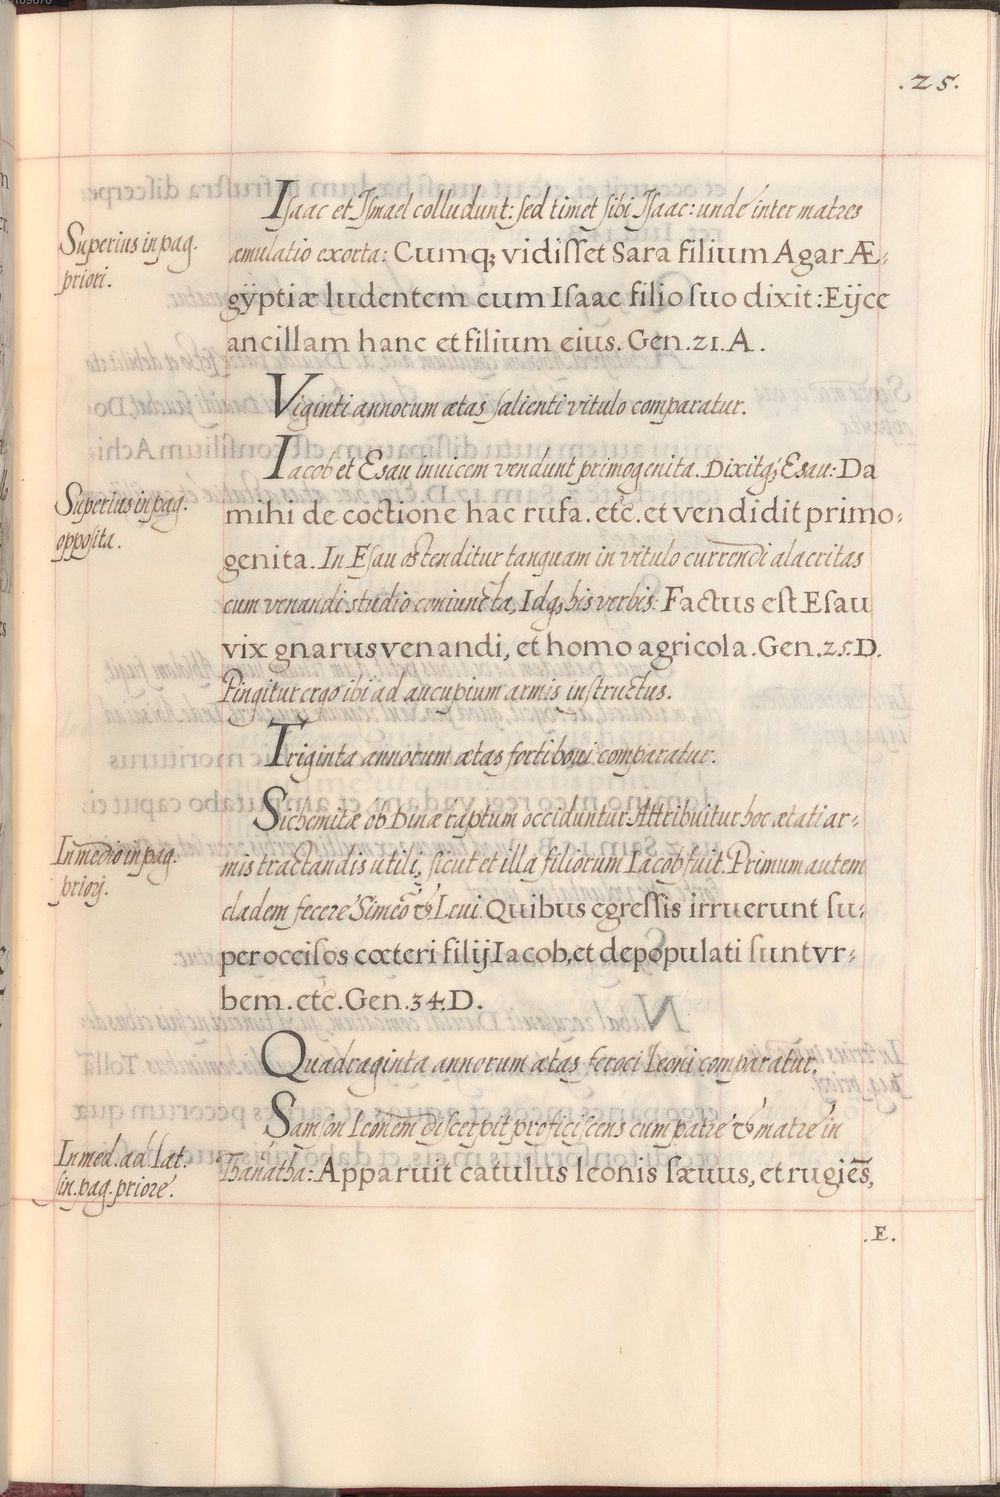 .25.
Isaac et Ismael colludunt: sed timet sibi Isaac: unde inter matres
Superius in pag.
priori.
æmulatio exorta: Cumq; vidisset Sara filium Agar Æ-
gÿptiæ ludentem cum Isaac filio suo dixit: Eijce
ancillam hanc et filium eius. Gen. 21. A.
Viginti annorum ætas salienti vitulo comparatur.
Iacob et Esau invicem vendunt primogenita. Dixitq; Esau: Da
Superius in pag.
opposita.
mihi de coctione hac rufa. etc. et vendidit primo-
genita. In Esau ostenditur tanquam in vitulo currendi alacritas
cum venandi studio coniuncta, Idq; his verbis: Factus est Esau
vix gnarus venandi, et homo agricola. Gen. 25. D.
Pingitur ergo ibi ad aucupium armis instructus.
Triginta annorum ætas forti boui comparatur.
Sichemitæ ob Dinæ raptum occiduntur. Attribuitur hoc ætati ar-
In medio in pag.
priorj.
mis tractandis utili, sicut et illa filiorum Iacob fuit. Primum autem
cladem fecere Simeō & Leui. Quibus egressis irruerunt su-
per occisos cœteri filij Iacob, et depopulati sunt vr-
bem. etc. Gen. 34. D.
Quadraginta annorum ætas feroci Leoni comparatur.
Samson Leonem discerpit proficiscens cum patre & matre in
In med. ad. Lat.
sin. pag. priore.
Thanātha: Apparuit catulus leonis sæuus, et rugiēs,
.E.